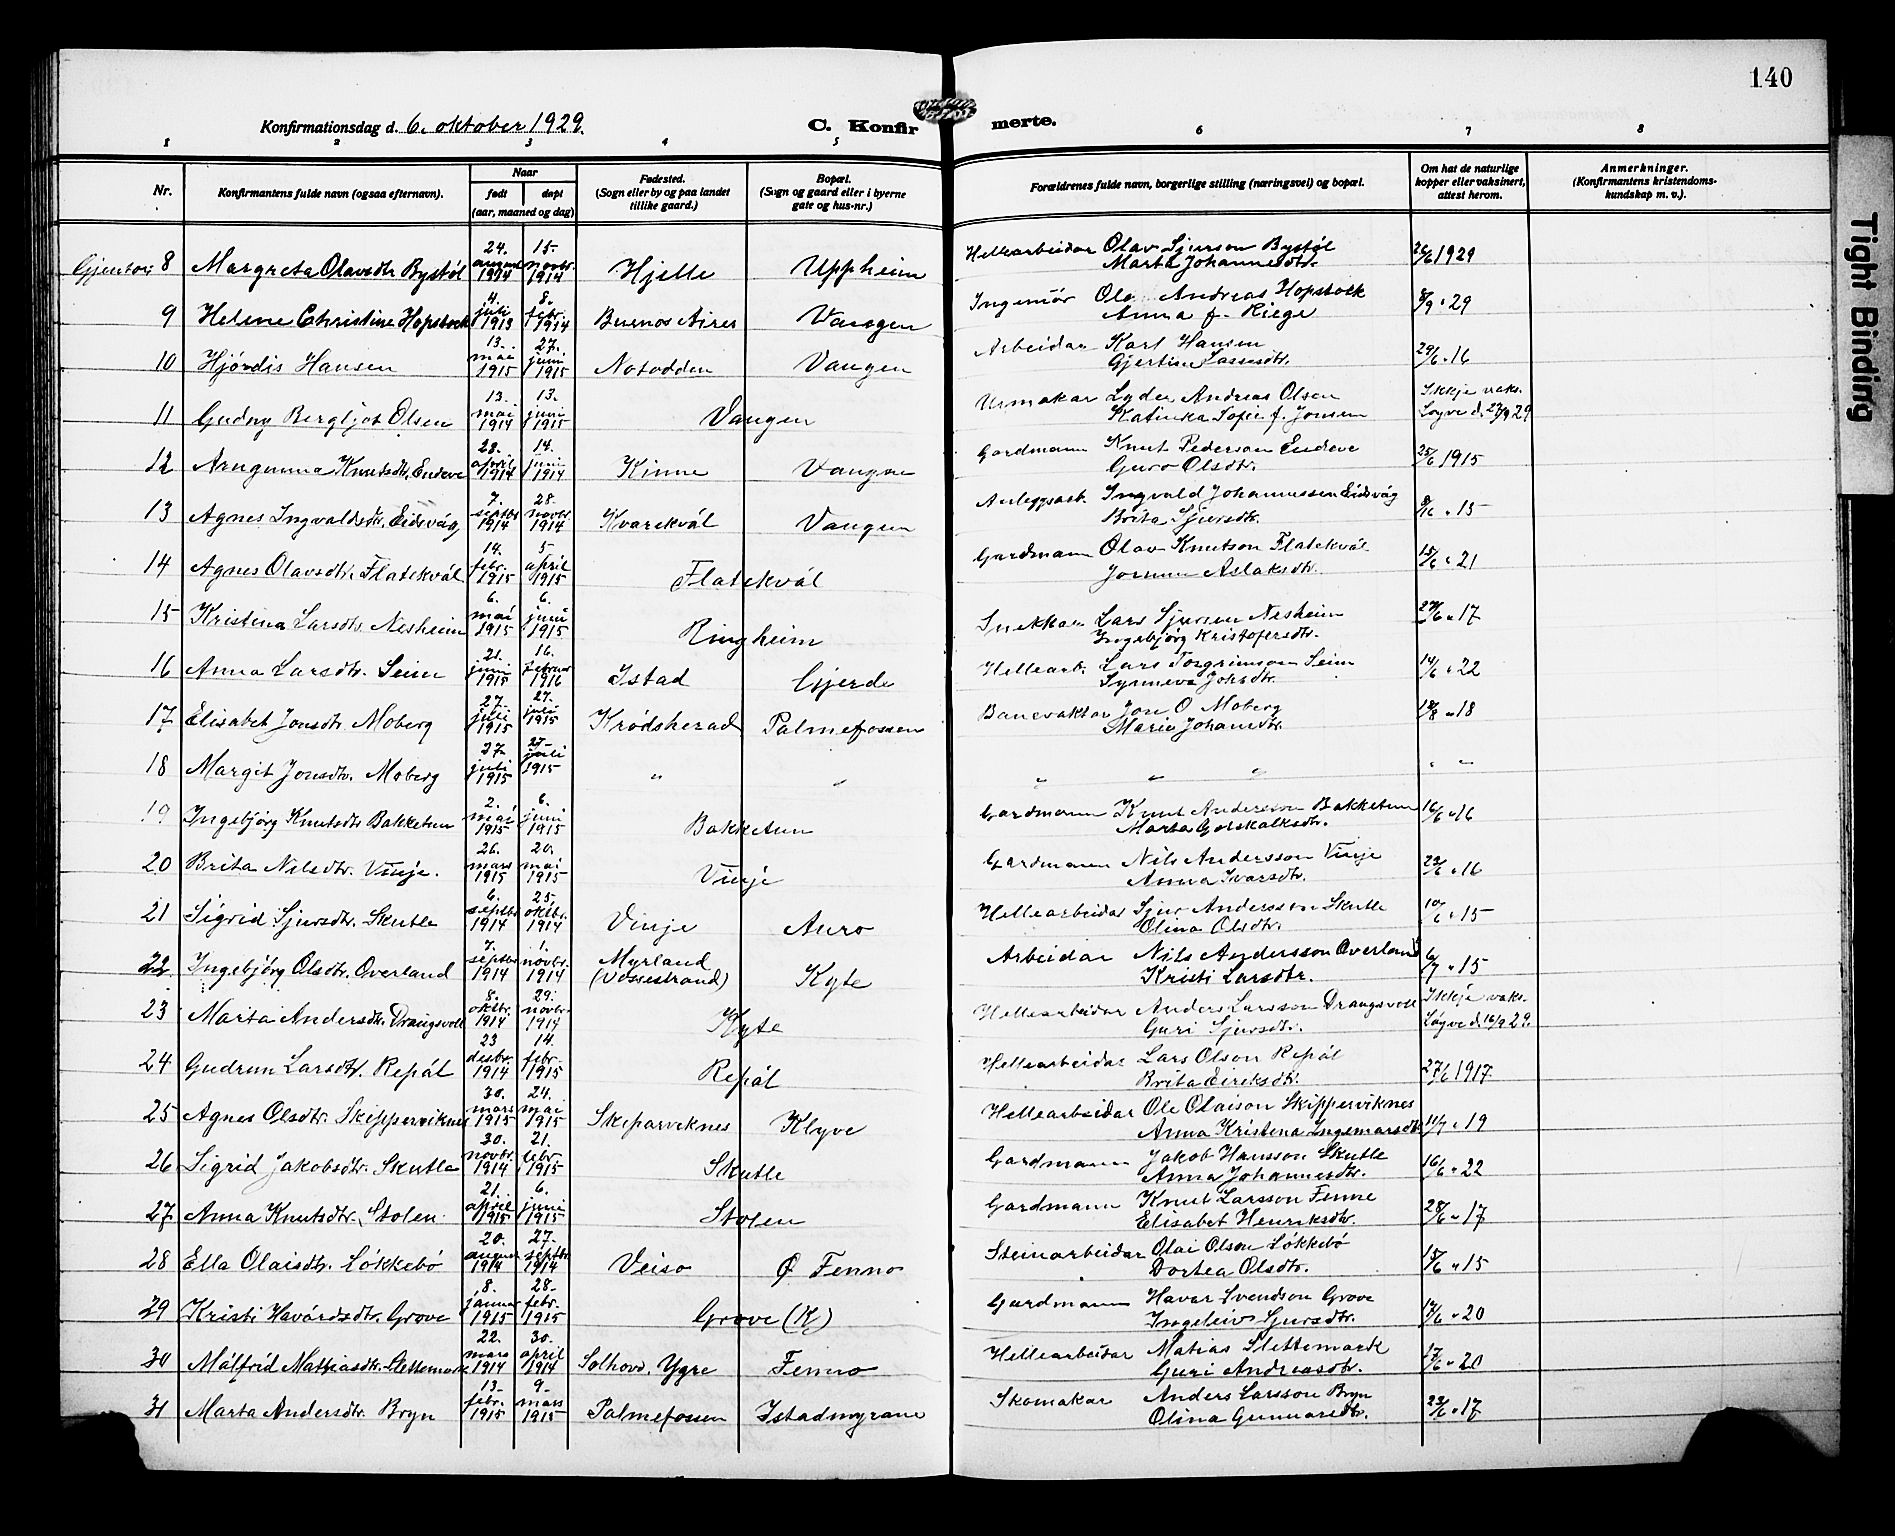 140
Konfirmationsdag d. 6. oktober 1929.
C. Konfirmerte.
1 2 3 4 5 6 7 8
Nr.
Konfirmantens fulde navn (ogsaa efternavn).
Naar
født døpt
(aar, maaned og dag)
Fødested.
(Sogn eller by og paa landet
tillike gaard.)
Bopæl.
(Sogn og gaard eller i byerne
gate og hus-nr.)
Forældrenes fulde navn, borgerlige stilling (næringsvei) og bopæl.
Om hat de naturlige
kopper eller vaksinert,
attest herom.
Anmerkninger.
(Konfirmantens kristendoms-
kundskap m. v.).
Gjentor: 8 Margreta Olavsdtr. Bystöl 24. august 1914 15. novbr. 1914 Hjelle Uppheim Hellearbeidar Olav Sjurson Bystöl 26/6 1929
Marta Johannesdtr.
9 Helene Christine Hopstock 4. juli 1913 8. febr. 1914 Buenos Aires Vangen Ingeniör Ole Andreas Hopstock 8/9 " 29
Anna f. Riege
10 Hjördis Hansen 13. mai 1915 27. juni 1915 Notodden Vangen Arbeidar Karl Hansen 29/6 " 16
Gjertine Lassesdtr.
11 Gudny Bergljot Olsen 13. mai 1914 13. juni 1915 Vangen Urmakar Lyder Andreas Olsen Ikkje vaks.
Katinka Sofie f. Jonsen Løyve d. 27/9 29
12 Arngunna Knutsdtr. Endeve 28. april 1914 14. juni 1914 Kinne Vangen Gardmann Knut Pederson Endeve 25/6 1915
Guro Olsdtr.
13 Agnes Ingvaldsdtr. Eidsvåg 7. septbr 1914 28. novbr 1914 Kvarekvål Vangen Anleggsarb. Ingvald Johannessen Eidsvåg 8/6 " 15
Brita Sjursdtr.
14 Agnes Olavsdtr. Flatekvål 14. febr. 1915 5. april 1915 Flatekvål Gardmann Olav Knutson Flatekvål 15/6 " 21
Jorunn Aslaksdtr.
15 Kristina Larsdtr. Nesheim 6. mai 1915 6. juni 1915 Ringheim Snekkar Lars Sjurson Nesheim 27/6 " 17
Ingebjörg Kristofersdtr.
16 Anna Larsdtr. Seim 21. juni 1915 16. februar 1916 Istad Gjerde Hellearb. Lars Torgrimson Seim 14/6 " 22
Synneva Johsdtr.
17 Elisabet Jonsdtr. Moberg 27. juli 1915 27. juli 1915 Krödsherad Palmefossen Banevaktar Jon O Moberg 18/8 " 18
Maria Johansdtr.
18 Margit Jonsdtr. Moberg 27. juli 1915 27. juli 1915 " " " " " " "
19 Ingebjörg Knutsdtr. Bakketun 2. mai 1915 6. juni 1915 Bakketun Gardmann Knut Andersson Bakketun 16/6 " 16
Marta Gotskalksdtr.
20 Brita Nilsdtr. Vinje. 26. mars 1915 20. mai 1915 Vinje Gardmann Nils Andersson Vinje 23/6 " 16
Anna Ivarsdtr.
21 Sigrid Sjursdtr. Skutle 6. septbr 1914 25. oktbr. 1914 Vinje Auro Hellearbeidar Sjur Andersson Skutle 10/6 " 15
Olina Olsdtr.
22 Ingebjörg Olsdtr. Overland 7. septbr 1914 1. novbr. 1914 Myrland (Vossestrand) Kyte Arbeidar Nils Andersson Overland 6/7 " 15
Kristi Larsdtr.
23 Marta Andersdtr. Drangsvoll 8. oktbr. 1914 29. novbr. 1914 Kyte Hellearbeidar Anders Larsson Drangsvoll Ikkje vaks.
Guri Sjursdtr. Løyve d. 16/9 29.
24 Gudrun Larsdtr. Repål 23 desbr. 1914 14. febr. 1915 Repål Hellearbeidar Lars Olson Repål 27/6 1917
Brita Eiriksdtr.
25 Agnes Olsdtr. Skipperviknes 30. mars 1915 24. mai 1915 Skiparviknes Klyve Hellearbeidar Ole Olaison Skipperviknes 11/7 " 19
Anna Kristina Ingemarsdtr.
26 Sigrid Jakobsdtr. Skutle 30. novbr. 1914 21. febr. 1915 Skutle Gardmann Jakob Hansson Skutle 16/6 " 22
Anna Johannesdtr.
27 Anna Knutsdtr. Stolen 21. april 1915 6. juni 1915 Stolen Gardmann Knut Larsson Fenne 28/6 " 17
Elisabet Henriksdtr.
28 Ella Olaisdtr. Lökkebö 20. august 1914 27. septbr 1914 Veiso Ø Fenno Steinarbeidar Olai Olson Lökkebö 15/6 " 15
Dortea Olsdtr.
29 Kristi Havårdsdtr. Grove 8. januar 1915 28. febr. 1915 Grove (K) Gardmann Havar Svendson Grove 17/6 " 20
Ingeleiv Sjursdtr.
30 Målfrid Mattiasdtr. Slettemark 22. mars 1914 30. april 1914 Solhov, Ygre Fenno Hellearbeidar Matias Slettemark 17/6 " 20
Guri Andreasdtr.
31 Marta Andersdtr. Bryn 13. febr. 1915 9. mars 1915 Palmefossen Istadmyrane Skomakar Anders Larsson Bryn 23/6 " 17
Olina Gunnarsdtr.
Tight Binding